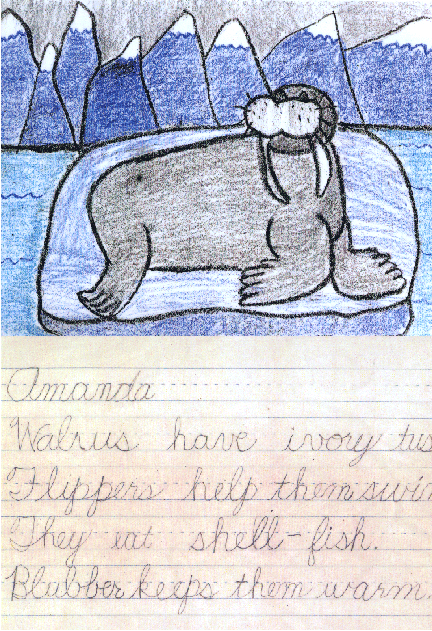 Amanda
Walrus have ivory tus
Flippers help them swim
They eat shell-fish.
Blubber keeps them warm.